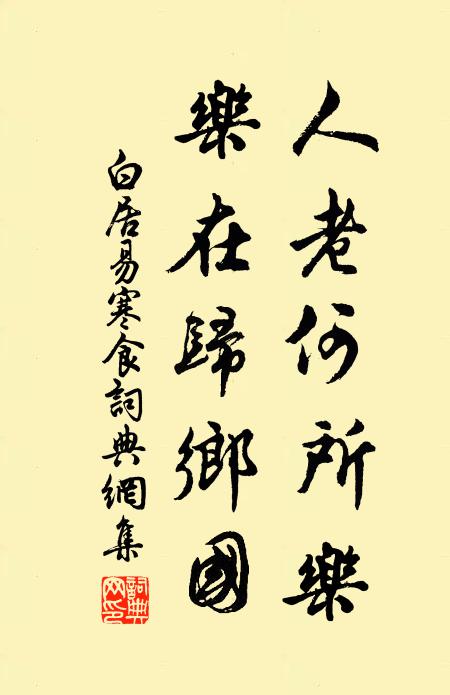 人老何所樂
樂在歸鄉國
白居易寒食詞典網集
詞典網印